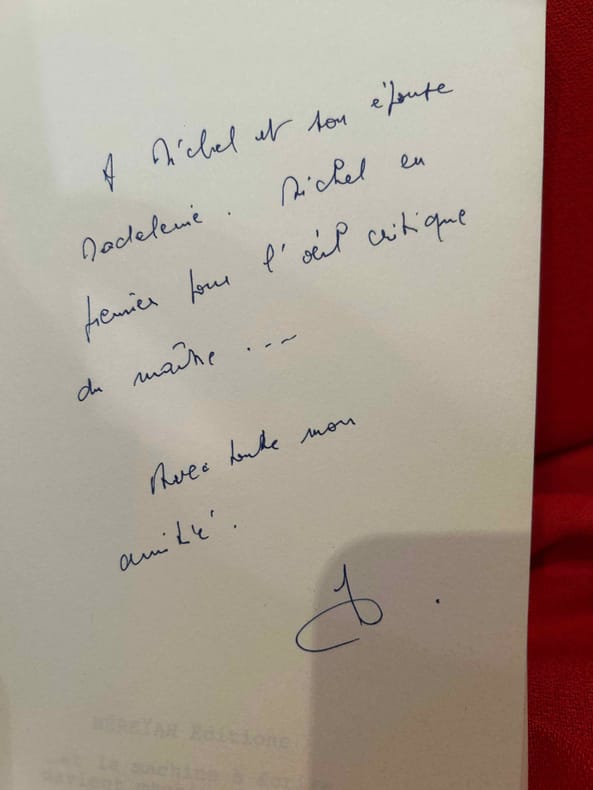 A Michel et son épouse
Madeleine. Michel en
premier pour l'œil critique
du maître ...
Avec toute mon
amitié.
Editions
et la machine à écrire
devient